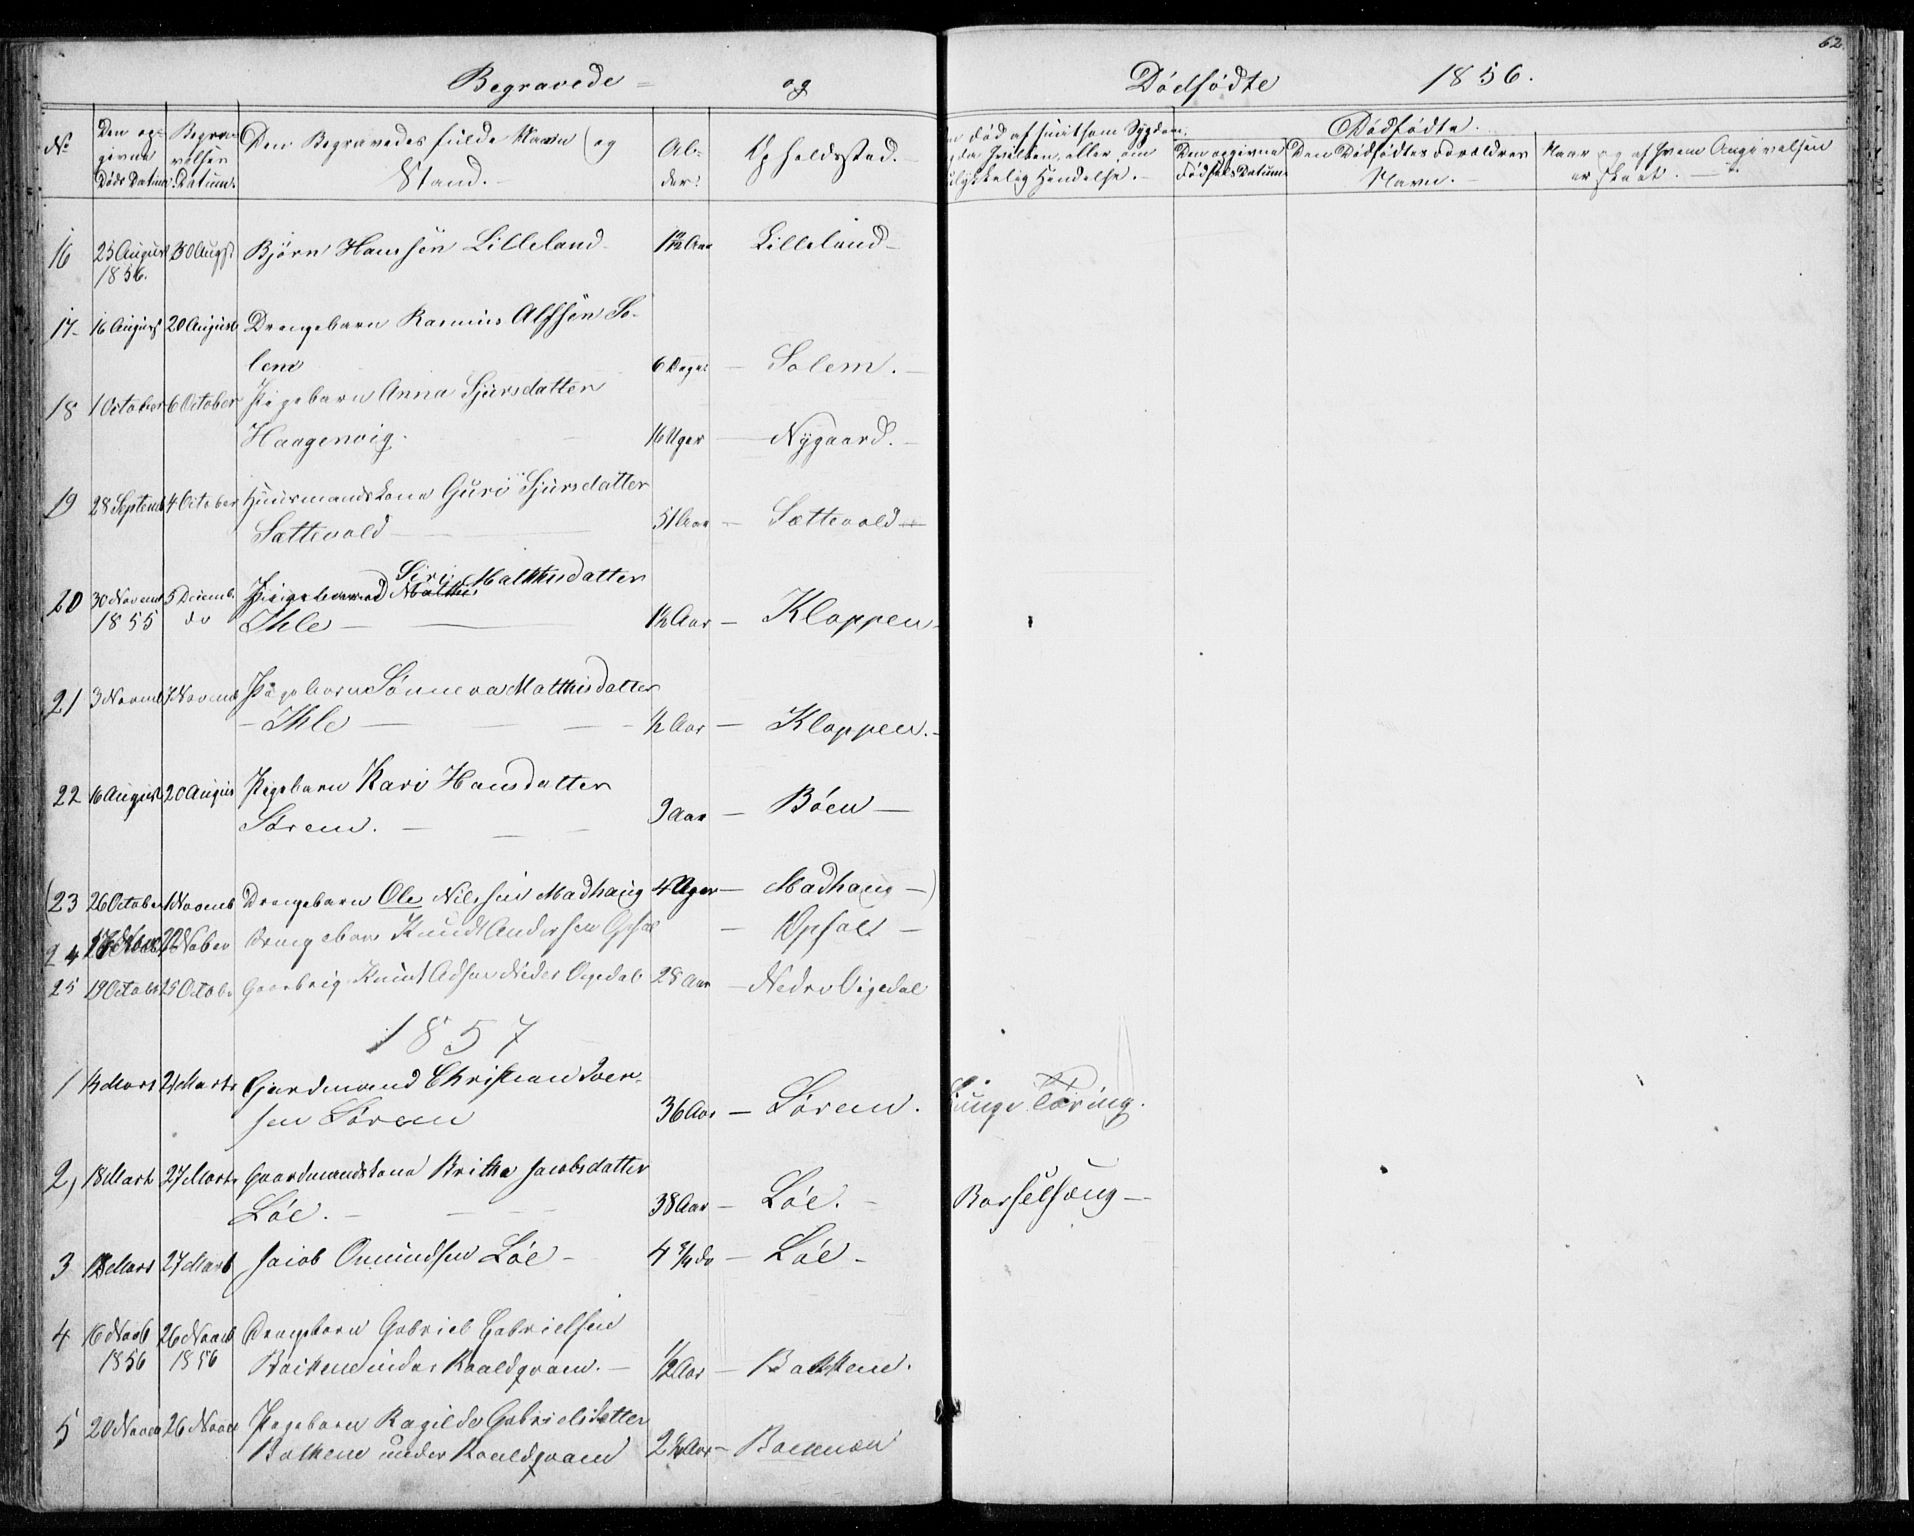 62.
Begravede = og Dødfødte 1856.
No. Den op-
givne
Døds Datum. Begra-
velses
Datum. Den Begravedes fulde Navn og
Stand. Al-
der. Opholdsstad.
død af smitsom Sygdom,
hvilken, eller om
ulykkelig Hendelse. Dødfødte.
Den opgivne
Fødsels Datum. Den Dødfødtes Forældres
Navn. Naar og af hvem Angivelsen
er skeet.
16 25 August 30 Augst. Bjørn Hansen Lilleland Aar Lilleland
1856.
17 16 August 20 August Drengebarn Rasmus Alfsen So-
lem 6 Dage Solem.
18 1 October 6 October Pigebarn Anna Sjursdatter
Haagenvig. 16 Uger Nygaard.
19 28 Septemb 4 October Huusmandskone Guri Sjursdatter
Sættevold 51 Aar Sættevold
20 30 Novemb 5 Decemb. Pigebarn Siri Matthisdatter
1855 do Ihle 1½ Aar Kloppen
21 3 Novemb 7 Novemb Pigebarn Sønneva Matthisdatter
Ihle ½ Aar Kloppen.
22 16 August 20 August Pigebarn Kari Hansdatter
Sørem. 3 Aar Bøen
(23 26 October 1 Novemb Drengebarn Ole Nilssen Madhaug 4 Uger Madhaug)
24 22 Drengebarn Knud Andersen Opsal Opsal
25 19 Octobr 25 Octobr Knut Nedre Vigedal 28 Aar Nedre Vigedal
1857
1 14 Mars 21 Marts Gardmand Christian Iver-
sen Sørem 36 Aar Sørem. Lunge Tæring.
2, 18 Mart 27 Marts Gaardmandskone Britha Jacobsdatter
Løe. 38 Aar Løe. Barselsæng
3 Mars 27 Mart Jacob Omundsen Løe 4 do Løe
4 16 Novb 26 Novemb Drengebarn Gabriel Gabrielsen
1856 1856 Bakkene under Kvaldqvam. ½ Aar Bakkene.
5 20 Novem 26 Novem Pigebarn Ragilde Gabrielsdatter
Bakkene under Roaldqvam 2½ Aar